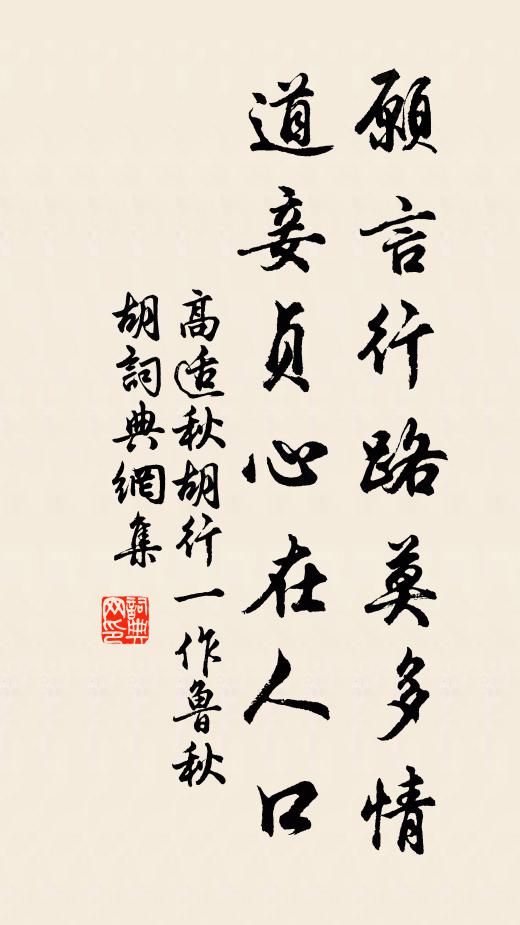 願言行路莫多情
道妾貞心在人口
高适秋胡行一作魯秋
胡詞典網集
詞典
网印